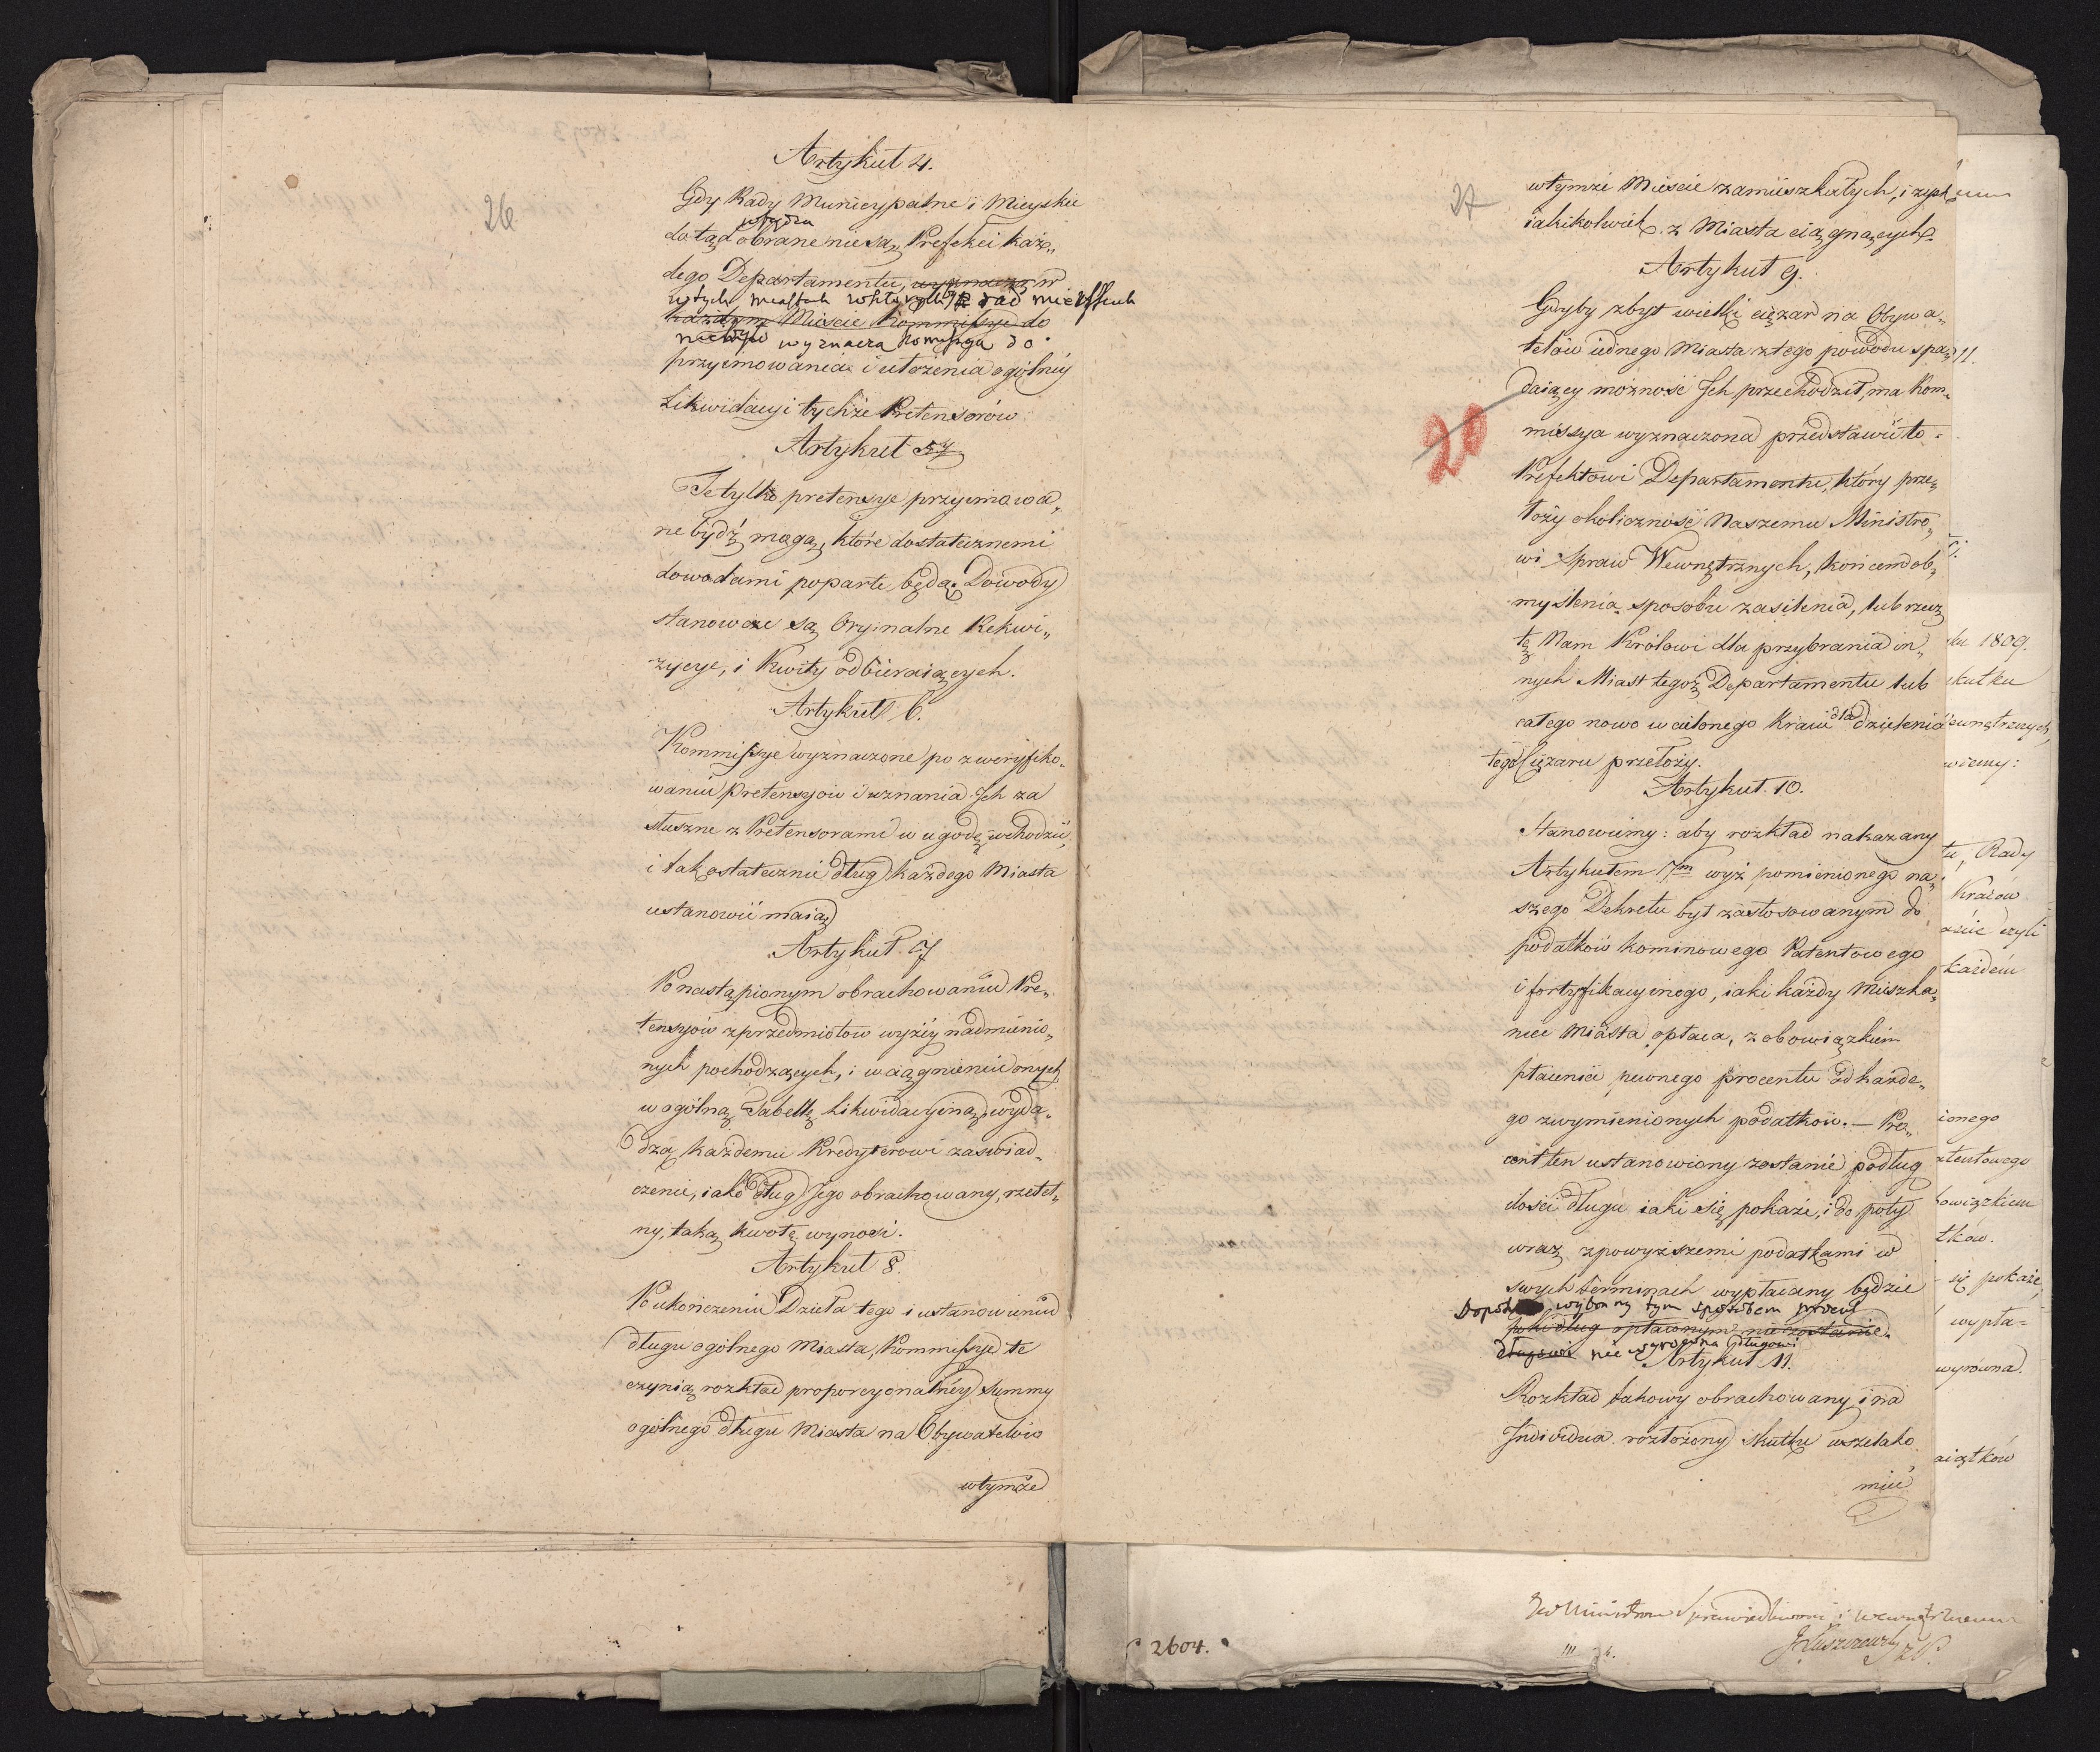 26
Artykuł 4.
Gdy Rady Municypalne i Mieyskie
dotąd obrane nie są, Prefekci każ„
dego Departamentu, wyznaczą w
w tych miastach w których rad mieyskich
każdym Mieście Kommissye do
wyznacza Komissyą do
przyimowania i ułożenia ogólnéy
Likwidacyi tychże Pretensorów
Artykuł 5.
Te tylko pretensye przyimowa„
ne bydź mogą, które dostatecznemi
dowodami poparte będą. Dowody
stanowcze są Oryinalne Rekwi„
zycye, i Kwity odbieraiących.
Artykuł 6.
Kommissye wyznaczone po zweryfiko„
waniu Pretensyow i uznania Ich za
słuszne z Pretensorami w ugodę wchodzić,
i tak ostatecznie dług każdego Miasta
ustanowić maią
Artykuł 7
Po nastąpionym obrachowaniu Pre„
tensyów z przedmiotow wyżéy nadmienio„
nych pochodzących, i wciągnieniu onych
w ogólną Tabellę Likwidacyiną, wyda„
dzą każdemu Kredytorowi zaswiad„
czenie, iako dług Jego obrachowany, rzetel„
ny, taką kwotę wynosi.
Artykuł 8.
Po ukończeniu Dzieła tego i ustanowieniu
długu ogolnego Miasta, Kommissye te
czynią rozkład proporcyonalnéy summy
ogólnego długu Miasta na Obywatelów
w tymże
27
w tymże Mieście zamieszkałych, i zysk
iakikolwiek z Miasta ciągnących.
Artykuł 9.
Gdyby zbyt wielki ciężar na Obywa„
telów iednego Miasta z tego powodu spa„
daiący możność Ich przechodził, ma Kom„
missya wyznaczona przedstawić to
20
Prefektowi Departamentu, który prze„
łoży okoliczność Naszemu Ministro„
wi Spraw Wewnętrznych, koncem ob„
myslenia sposobu zasilenia, lub rzecz
tę Nam Królowi dla przybrania in„
nych Miast tegoż Departamentu lub
całego nowo wcielonego Kraiu dla dzielenia
tego Ciężaru przełoży.
Artykuł 10.
Stanowimy: aby rozkład nakazany
Artykułem 7m wyż pomienionego na„
szego Dekretu był zastosowanym do
podatków kominowego Patentowego
i fortyfikacyinego, iaki każdy Mieszka„
niec Miasta opłaca, z obowiązkiem
płacenia pewnego procentu od każde„
go zwymienionych podatkow. — Pro„
cent ten ustanowiony zostanie podług
ilości długu iaki się pokaże, i do poty
wraz z powyższemi podatkami w
swych terminach wypłacany będzie
wybrany tym sposobem procent
poki dług opłaconym nie zostanie.
długowi nie wyrówna długowi
Artykuł 11.
Rozkład takowy obrachowany i na
Individua rozłożony skutku wszelako
mieć
11.
ku 1809.
skutku
ewnętrznych,
wiemy:
tu, Rady
Kraiów
czyli
każdém
ionego
atentowego
bowiązkiem
tków.
się pokaże,
wypła=
wyrówna.
aiątków
2604.